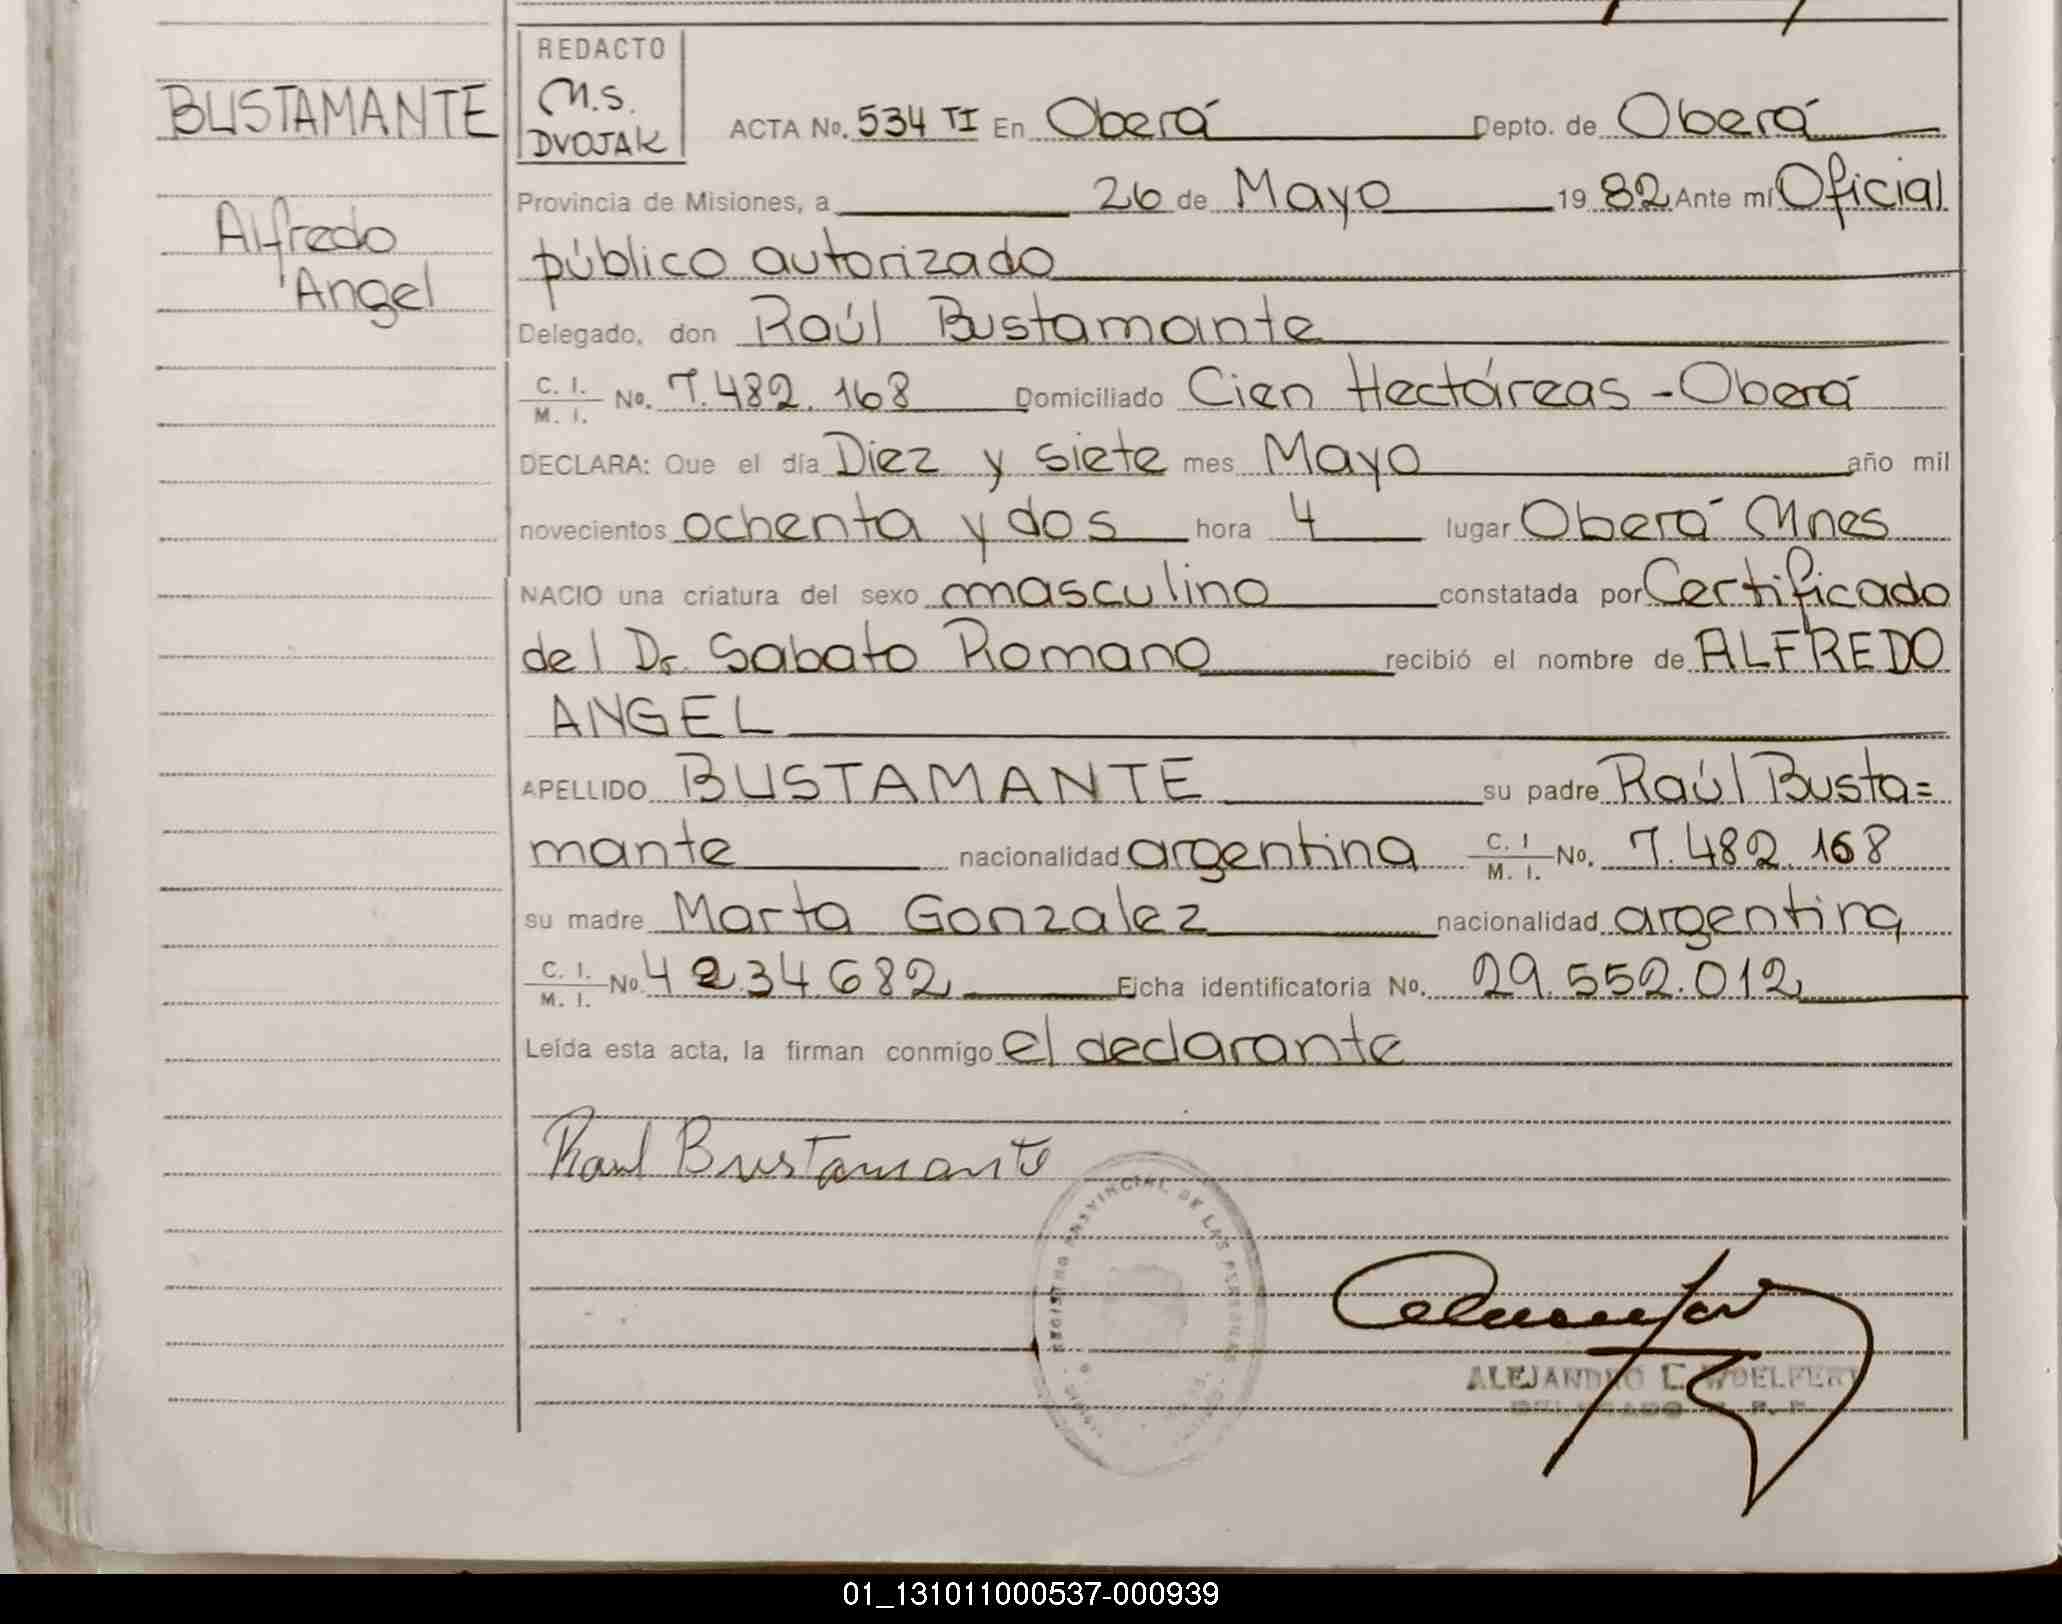 BUSTAMANTE
Alfredo
Angel
REDACTO
M.S.
DVOJAK
ACTA No. 534 TI En Oberá Depto. de Oberá
Provincia de Misiones, a 26 de Mayo 1982 Ante mí Oficial
público autorizado
Delegado, don Raúl Bustamante
C. I. / M. I. No. 7.482.168 Domiciliado Cien Hectáreas - Oberá
DECLARA: Que el día Diez y siete mes Mayo año mil
novecientos ochenta y dos hora 4 lugar Oberá Mnes
NACIO una criatura del sexo masculino constatada por Certificado
del Dr. Sabato Romano recibió el nombre de ALFREDO
ANGEL
APELLIDO BUSTAMANTE su padre Raúl Busta=
mante nacionalidad argentina C. I / M. I. No. 7.482.168
su madre Marta Gonzalez nacionalidad argentina
C. I. / M. I. No. 4234682 Ficha identificatoria No. 29.552.012
Leída esta acta, la firman conmigo el declarante
Raul Bustamante
REGISTRO PROVINCIAL DE LAS PERSONAS
ALEJANDRO L. WOELFERT
DELEGADO
01_131011000537-000939